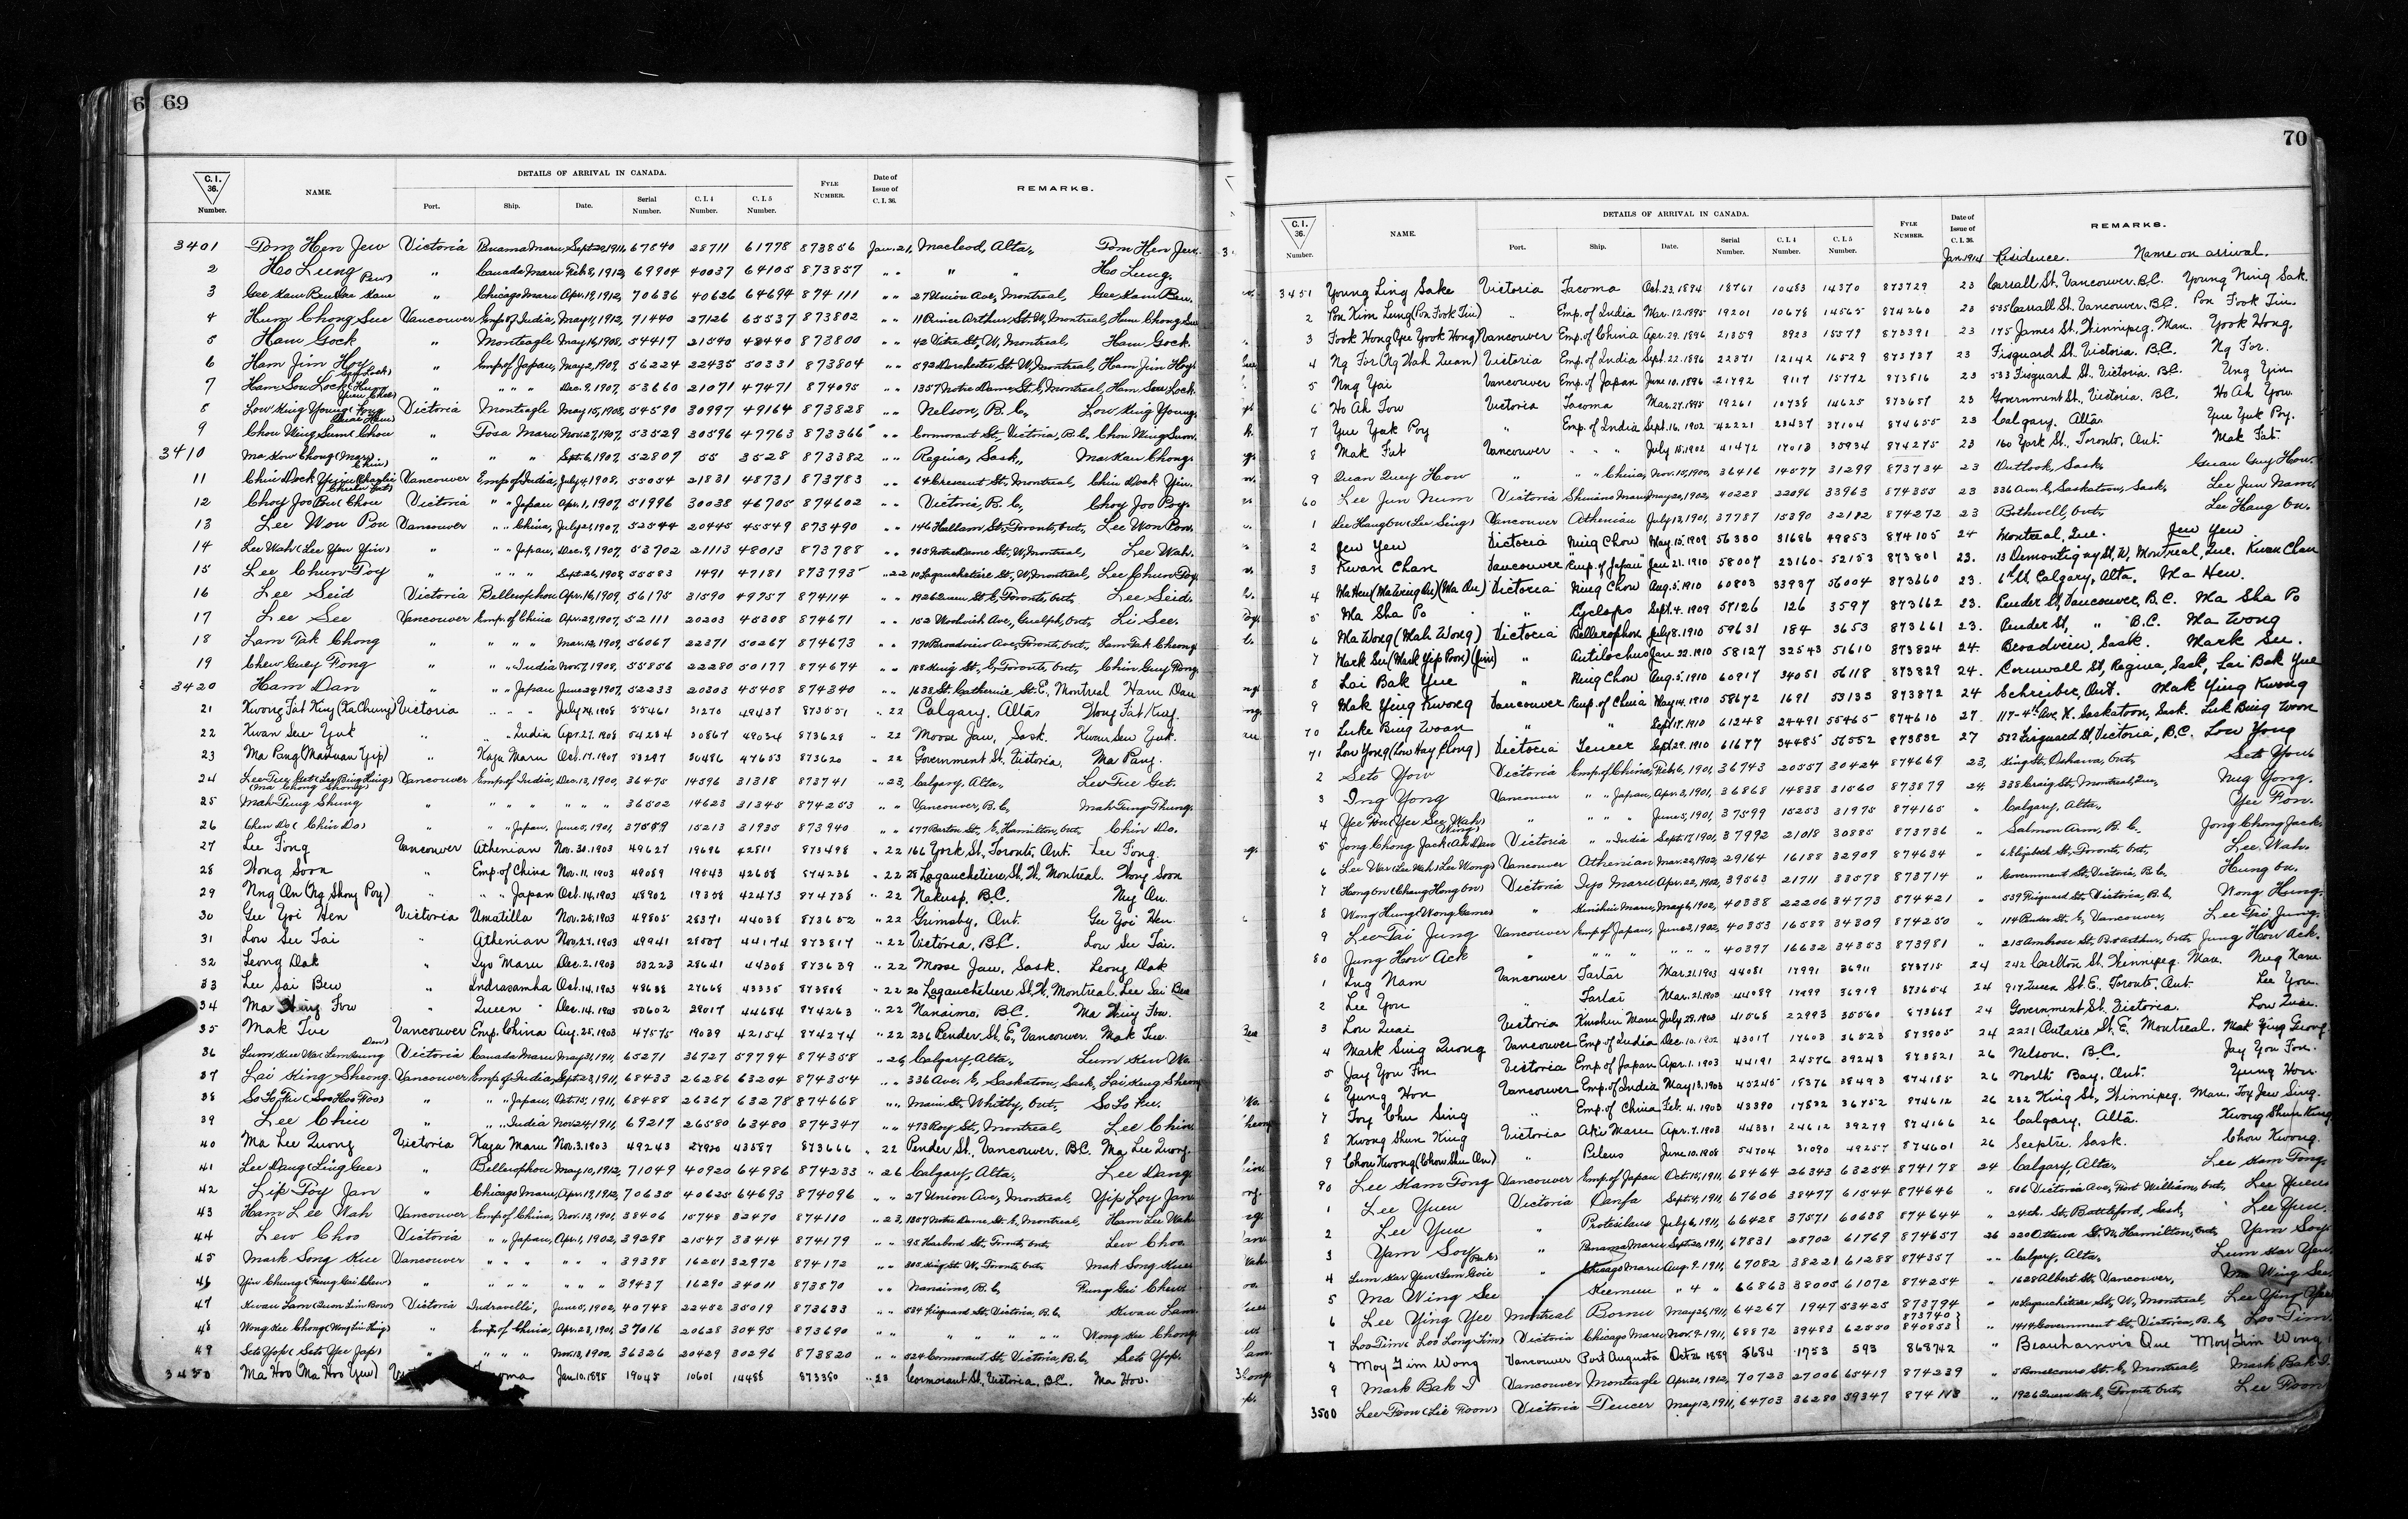 6 69
C.I. 36. Number. NAME. DETAILS OF ARRIVAL IN CANADA. Port. Ship. Date. Serial Number. C.I.4 Number. C.I.5 Number. FYLE NUMBER. Date of Issue of C.I.36. REMARKS.
3401 Tom Hen Jew Victoria Panama Maru Sept. 20, 1911, 67840 28711 61778 873856 Jan. 21, Macleod, Alta., Tom Hen Jew.
2 Ho Lung " Canada Maru Feb 8, 1912, 69904 40037 64105 873857 " " " " Ho Lung.
3 Gee Kam Ben " Chicago Maru Apr. 19, 1912, 70636 40626 64694 874111 " " 27 Union Ave, Montreal, Gee Kam Ben.
4 Hum Chong Sue Vancouver Emp. of India, May 11, 1912, 71440 27126 65537 873802 " " 11 Prince Arthur St. W, Montreal, Hum Chong Sue
5 Ham Gock " Monteagle May 16, 1908, 54417 21540 48440 873800 " " 42 Vitre St, W, Montreal, Ham Gock.
6 Ham Jim Hoy " Emp of Japan, May 2, 1909, 56224 22435 50331 873804 " " 592 Dorchester St. W, Montreal, Ham Jim Hoy
7 Ham Sou Lock " " " " Dec. 9, 1907, 53660 21071 47471 874095 " " 1357 Notre Dame St. E, Montreal, Ham Sou Lock.
8 Low King Young Victoria Monteagle May 15, 1908, 54590 30997 49164 873828 " " Nelson, B.C., Low King Young.
9 Chou Wing Sum " Tosa Maru Nov. 27, 1907, 53529 20596 47763 873366 " " Cormorant St, Victoria, B.C. Chou Wing Sum.
3410 Ma Kow Chong " " " Sept. 6, 1907, 52807 55 3528 873382 " " Regina, Sask., Ma Kau Chong.
11 Chin Dock Yin Vancouver Emp of India, July 4, 1908, 55054 21831 48731 873783 " " 64 Crescent St, Montreal, Chin Dock Yin.
12 Choy Joo Victoria " " Japan Apr. 1, 1907, 51996 30038 46705 874602 " " Victoria, B.C., Choy Joo Poy.
13 Lee Won Pon Vancouver " " China, July 2, 1907, 52544 20445 45549 873490 " " 146 Hallam St, Toronto, Ont., Lee Won Pon.
14 Lee Wah (Lee Yen Yin) " " " Japan, Dec. 9, 1907, 53702 21113 48013 873788 " " 965 Notre Dame St., W, Montreal, Lee Wah.
15 Lee Chun Toy " " " " Sept. 26, 1908, 55583 1491 47181 873795 " 22 10 Lagauchetiere St., W, Montreal, Lee Chun Toy
16 Lee Seid Victoria Bellerophon Apr. 16, 1909, 56175 31590 49757 874114 " " 1926 Queen St E, Toronto, Ont., Lee Seid.
17 Lee See Vancouver Emp. of China Apr. 29, 1907, 52111 20203 45308 874671 " " 152 Woolwich Ave, Guelph, Ont., Li See.
18 Lam Tak Chong " " " " Mar. 12, 1909, 56067 22371 50267 874673 " " 770 Broadview Ave, Toronto, Ont., Lam Tak Cheong
19 Chew Guey Fong " " " India Nov. 7, 1908, 55856 22280 50177 874674 " " 188 King St., E, Toronto, Ont., Chin Guy Fong
3420 Ham Dan " " " Japan June 24, 1907, 52233 20303 45408 874340 " " 1638 St. Catherine St. E, Montreal Ham Dan
21 Kwong Fat King (Ka Chung) Victoria " " " July 14, 1908 55461 31270 49437 873551 " 22 Calgary, Alta. Wong Fat King.
22 Kwan Sew Yuk " " " India Apr. 27, 1908 54284 30867 49034 873628 " 22 Moose Jaw, Sask. Kwan Sew Yuk.
23 Ma Pang (Ma Yuan Yip) " Kaga Maru Oct. 17, 1907 53297 30486 47653 873620 " 22 Government St, Victoria, Ma Pang.
24 Lew Tue Get (Lew Bing Hing) Vancouver Emp of India, Dec. 13, 1900, 36475 14596 31318 873741 " 23, Calgary, Alta., Lew Tue Get.
25 Mah Tung Shung (Ma Chong Shong) " " " " " " " 36502 14623 31345 874253 " " Vancouver, B.C., Mah Tung Thung.
26 Chew Do (Chin Do) " " " Japan, June 5, 1901, 37559 15213 31935 873940 " " 677 Barton St., E, Hamilton, Ont, Chin Do.
27 Lee Fong Vancouver Athenian Nov. 30, 1903 49627 19696 42811 873498 " 22 166 York St, Toronto, Ont. Lee Fong
28 Wong Soon " Emp. of China Nov. 11, 1903 49089 19543 42658 874236 " 22 28 Lagauchetiere St, W, Montreal. Wong Soon
29 Nng On (Ng Shong Poy) " " " Japan Oct. 14, 1903 48902 19358 42473 874738 " 22 Nakusp, B.C. Nng On.
30 Gee Yoi Hen Victoria Umatilla Nov. 28, 1903 49805 28371 44038 873652 " 22 Grimsby, Ont. Gee Yoi Hen
31 Low See Tai " Athenian Nov. 27, 1903 49941 28507 44174 873817 " 22 Victoria, B.C. Low See Tai.
32 Leong Dak " Iyo Maru Dec. 2, 1903 53223 28641 44308 873639 " 22 Moose Jaw, Sask. Leong Dak
33 Lee Sai Bew " Indrasamha Oct. 14, 1903 48638 27668 43335 873808 " 22 20 Lagauchetiere St, W, Montreal. Lee Sai Bew
34 Ma Hing Fow " Queen Dec. 14, 1903 50602 29017 44684 874263 " 22 Nanaimo, B.C. Ma Hing Fow.
35 Mak Tue Vancouver Emp. China Aug. 25, 1903 47575 19039 42154 874274 " 22 236 Pender St, E, Vancouver. Mak Tue
36 Lum Kew Wa Victoria Canada Maru May 31, 1911, 65271 36727 59794 874358 " 26 Calgary, Alta., Lum Kew Wa
37 Lai King Sheong Vancouver Emp of India, Sept. 23, 1911, 68433 26286 63204 874354 " " 336 Ave. E, Saskatoon, Sask, Lai King Sheong
38 So Lo Fui (Soo Hoo Foo) " " " Japan, Oct. 15, 1911, 68488 26367 63278 874668 " " Main St., Whitby, Ont, So Lo Fui.
39 Lee Chin " " " India Nov. 24, 1911, 69217 26580 63480 874347 " " 473 Roy St, Montreal, Lee Chin
40 Ma Lee Quong Victoria Kaga Maru Nov. 3, 1903 49243 27920 43587 873666 " 22 Pender St., Vancouver. BC. Ma Lee Quong.
41 Lee Dang (Ling Gee) " Bellerophon May 10, 1912, 71049 40920 64986 874233 " 26 Calgary, Alta., Lee Dang
42 Lip Toy Jan " Chicago Maru, Apr. 19, 1912, 70635 40625 64693 874096 " " 27 Union Ave, Montreal, Yip Loy Jan
43 Ham Lee Wah Vancouver Emp of China, Nov. 13, 1901, 38406 15748 32470 874110 " 23, 1357 Notre Dame St. E, Montreal, Ham Lee Wah
44 Lew Choo Victoria " " Japan, Apr. 1, 1902, 39298 21547 33414 874179 " " 95 Harbord St, Toronto, Ont, Lew Choo.
45 Mark Song Kue Vancouver " " " " " " 39398 16251 32972 874172 " " 305 King St. W, Toronto, Ont Mak Song Kue
46 Yin Chung (Pung Gai Chew) " " " " " " " 39437 16290 34011 873870 " " Nanaimo, B.C, Pung Gai Chew.
47 Kwan Lam (Quon Lim Bow) Victoria Indravelli, June 5, 1902, 40748 22452 35019 873633 " " 534 Fisguard St, Victoria, B.C, Kwan Lam.
48 Wong Kee Chong (Wong Lin Hing) " Emp. of China, Apr. 23, 1901, 37016 20628 30495 873690 " " " " " " Wong Kee Chong
49 Seto Yop (Seto Yee Jap) " " " " Nov. 13, 1900, 36326 20429 30296 873820 " " 524 Cormorant St, Victoria, B.C, Seto Yop.
3450 Ma Hoo (Ma Hoo Yew) Jan. 10, 1895 19045 10601 14488 873380 " 23 Cormorant St, Victoria, B.C. Ma Hoo.
70
C.I. 36. Number. NAME. DETAILS OF ARRIVAL IN CANADA. Port. Ship. Date. Serial Number. C.I.4 Number. C.I.5 Number. FYLE NUMBER. Date of Issue of C.I.36. REMARKS.
Jan. 1914 Residence. Name on arrival.
3451 Young Ling Sake Victoria Tacoma Oct. 23, 1894 18761 10483 14370 873729 23 Carrall St, Vancouver, B.C. Young Ning Sak.
2 Pon Kim Lung (Pon Fook Tin) " Emp. of India Mar. 12, 1895 19201 10678 14565 874260 23 535 Carrall St, Vancouver, B.C. Pon Fook Tin.
3 Fook Hong (Yee Yook Hong) Vancouver Emp. of China Apr. 29, 1896 21359 8923 15579 873391 23 175 James St, Winnipeg, Man. Yook Hong.
4 Ng For (Ng Wah Quan) Victoria Emp. of India Sept. 22, 1896 22371 12142 16529 873737 23 Fisguard St, Victoria, B.C. Ng For.
5 Nng Yai Vancouver Emp. of Japan June 10, 1896 21792 9117 15772 873816 23 533 Fisguard St., Victoria, B.C. Ung Yin
6 Ho Ah Tow Victoria Tacoma Mar. 27, 1895 19261 10738 14625 873657 23 Government St., Victoria, B.C. Ho Ah Yow.
7 Yue Yak Poy " Emp. of India Sept. 16, 1902 42221 23437 37104 874655 23 Calgary, Alta. Yue Yuk Poy.
8 Mak Fat Vancouver " " " July 15, 1902 41472 17013 35934 874275 23 160 York St., Toronto, Ont. Mak Fat.
9 Quan Quey How " " " China, Nov. 15, 1900, 36416 14577 31299 873734 23 Outlook, Sask. Guan Guy How.
60 Lee Jun Num Victoria Shinano Maru May 20, 1902, 40228 22096 33963 874355 23 336 Ave. E, Saskatoon, Sask, Lee Jun Nam.
1 Lee Hang On (Lee Sing) Vancouver Athenian July 13, 1901, 37787 15390 32182 874272 23 Bothwell, Ont. Lee Hang On.
2 Jew Yew Victoria Ning Chow May 15, 1909 56380 31686 49853 874105 24 Montreal, Que. Jew Yew
3 Kwan Chan Vancouver Emp. of Japan Jan. 21, 1910 58007 23160 52153 873801 23. 13 Demontigny St, W, Montreal, Que. Kwan Chan
4 Ma Hew (Ma Wing On) (Ma On) Victoria Ning Chow Aug. 5, 1910 60803 33937 56004 873660 23. 6th St, Calgary, Alta. Ma Hew.
5 Ma Sha Po " Cyclops Sept. 4, 1909 57126 126 3597 873662 23. Pender St, Vancouver, B.C. Ma Sha Po
6 Ma Wong (Mah Wong) Victoria Bellerophon July 8, 1910 59631 184 3653 873661 23. Pender St, " B.C. Ma Wong
7 Mark Su (Mark Yip Poon) (Jin) " Antilochus Jan. 22, 1910 58127 32543 51610 873824 24. Broadview, Sask. Mark Su.
8 Lai Bak Yue " Ning Chow Aug. 5, 1910 60917 34051 56118 873829 24. Cornwall St, Regina, Sask, Lai Bak Yue
9 Mak Ying Kwong Vancouver Emp. of China May 14, 1910 58672 1691 53133 873872 24 Schreiber, Ont. Mak Ying Kwong
70 Luke Bing Woan " " Sept. 17, 1910 61248 24491 55465 874610 27. 117-4th Ave, N. Saskatoon, Sask. Luk Bing Woon
71 Low Yong (Low Hay Chong) Victoria Teucer Sept. 29, 1910 61677 34485 56552 873832 27 572 Fisguard St, Victoria, B.C. Low Yong
2 Seto Yow Victoria Emp. of China, Feb. 6, 1901, 36743 20557 30424 874669 23, King St., Oshawa, Ont, Seto Youe
3 Ing Yong Vancouver " " Japan, Apr. 3, 1901, 36868 14838 31560 873879 24. 338 Craig St., Montreal, Que, Nug Yong.
4 Yee Fon (Yee See Wah) " " " " June 5, 1901, 37599 15253 31975 874165 " Calgary, Alta., Yee Fon.
5 Jong Chong Jack Victoria " " India Sept. 17, 1901, 37992 21018 30885 873736 " Salmon Arm, B.C. Jong Chong Jack.
6 Lee War (Lee Wah) (Lee Wong) Vancouver Athenian Mar. 22, 1902, 29164 16188 32909 874634 " Elizabeth St, Toronto, Ont, Lee Wah.
7 Hong On (Chung Hong On) Victoria Iyo Maru Apr. 22, 1902, 39563 21711 33578 873714 " Government St, Victoria, B.C, Hung On.
8 Wong Hung (Wong Game) " Kinshiu Maru, May 6, 1902, 40338 22206 34773 874421 " 539 Fisguard St., Victoria, B.C, Wong Hung.
9 Lee Tai Jung Vancouver Emp of Japan, June 3, 1902, 40353 16588 34309 874250 " 114 Pender St. E, Vancouver, Lee Tai Jung.
80 Jung How Ack " " " " " " " 40397 16632 34353 873981 " 215 Ambrose St, Pt Arthur, Ont, Jung How Ack.
1 Lug Nam Vancouver Tartar Mar. 21, 1903 44081 17991 36911 873715 24 242 Carlton St, Winnipeg, Man. Nug Nam
2 Lee You " Tartar Mar. 21, 1903 44089 17999 36919 873654 24 917 Queen St. E. Toronto, Ont. Lee You.
3 Lou Quai Victoria Kinshiu Maru July 28, 1902 41568 22993 35560 873667 24 Government St, Victoria. Low Quai.
4 Mark Sing Quong Vancouver Emp. of India Dec. 10, 1902 43017 17603 36523 873805 24 2221 Ontario St, E. Montreal. Mak Ying Geong
5 Jay You Fon Victoria Emp. of Japan Apr. 1, 1903 44191 24576 39243 873821 26 Nelson, B.C. Jay You Fon.
6 Yung Hon Vancouver Emp. of India May 13, 1903 45245 18376 38493 874185 26 North Bay, Ont. Yung Hon.
7 Foy Chu Sing " Emp. of China Feb. 4, 1903 43390 17832 36752 874612 26 232 King St., Winnipeg, Man. Foy Jew Sing.
8 Kwong Shun King Victoria Aki Maru Apr. 7, 1903 44331 24612 39279 874166 26 Calgary, Alta. Kwong Shun King
9 Chou Kwong (Chow Shu On) " Peleus June 10, 1908 54704 31090 49257 874601 26 Sceptre, Sask. Chou Kwong.
90 Lee Kam Tong Vancouver Emp. of Japan Oct. 15, 1911, 68464 26343 63254 874178 24 Calgary, Alta., Lee Kam Tong
1 Lee Yuen Victoria Oanfa Sept. 4, 1911, 67606 38477 61544 874646 " 506 Victoria Ave, Fort William, Ont, Lee Yuen
2 Lee Yun " Protesilaus July 6, 1911, 66428 37571 60638 874644 " 24th St, Battleford, Sask, Lee Yun.
3 Yam Soy " Panama Maru Sept. 20, 1911, 67831 28702 61769 874657 26 220 Ottawa St. N, Hamilton, Ont, Yam Soy.
4 Lum Kar Yen " Chicago Maru Aug. 9, 1911, 67082 38221 61288 874357 " " Calgary, Alta., Lum Kar Yen.
5 Ma Wing See " Keemun " 4 " 66863 38005 61072 874254 " 1628 Albert St, Vancouver, Ma Wing See
6 Lee Ying Yee Montreal Bornu May 26, 1911, 64267 1947 53425 873794 " 10 Lagauchetiere St, W, Montreal, Lee Ying Yee
7 Loo Tim (Loo Long Tim) Victoria Chicago Maru Nov. 9, 1911, 68872 39483 62550 873740 840853 } " 1414 Government St, Victoria, B.C, Loo Tim.
8 Moy Jim Wong Vancouver Port Augusta Oct 26 1889 5684 1753 593 868742 " Beauharnois Que Moy Jim Wong
9 Mark Bak I Vancouver Monteagle Apr. 20, 1912, 70723 27006 65419 874239 " 5 Bonsecours St. E, Montreal, Mark Bak I.
3500 Lee Foon (Lee Foon) Victoria Teucer May 12, 1911, 64703 36280 59347 874113 " 1926 Queen St. E, Toronto, Ont, Lee Foon